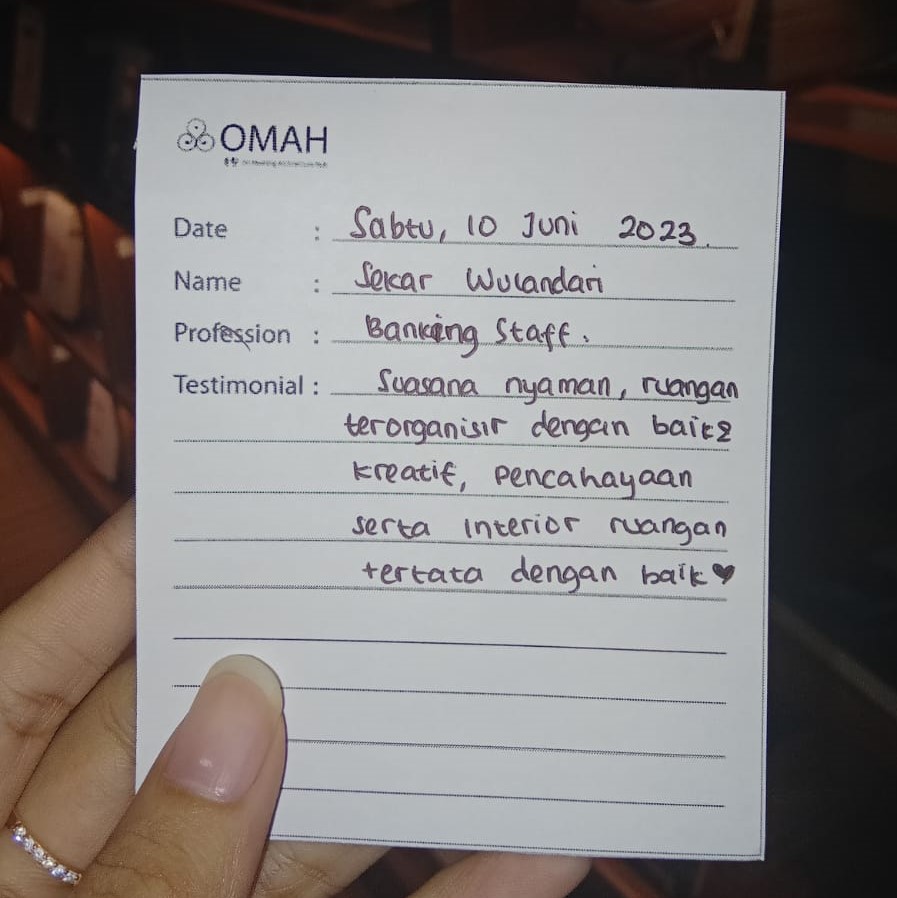 OMAH
Date : Sabtu, 10 Juni 2023.
Name : Sekar Wulandari
Profession : Banking Staff.
Testimonial : Suasana nyaman, ruangan
terorganisir dengan baik2
kreatif, pencahayaan
serta interior ruangan
tertata dengan baik♥